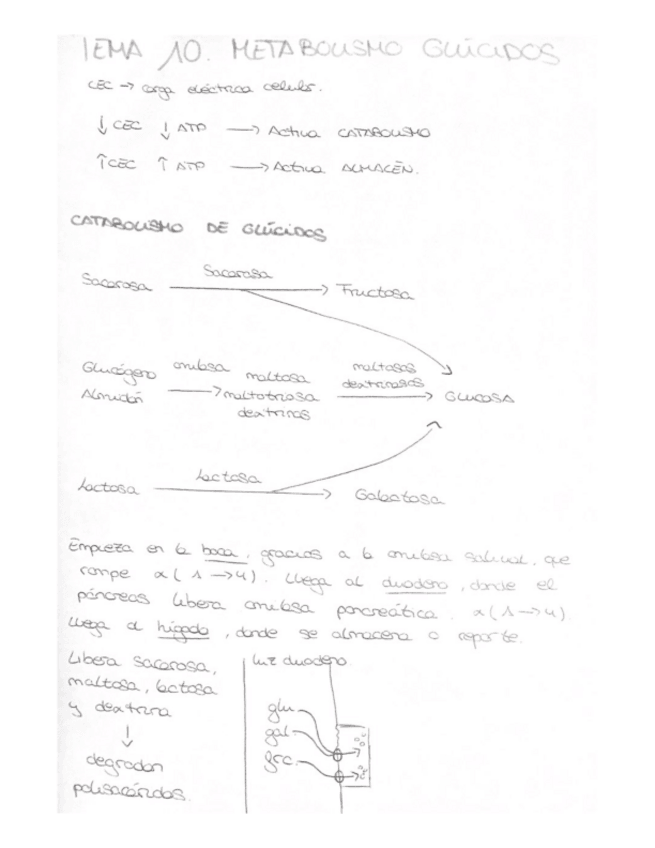 TEMA 10. METABOLISMO GLÚCIDOS
CEC → carga eléctrica celular.
↓ CEC ↓ ATP → Activa CATABOLISMO
↑ CEC ↑ ATP → Activa ALMACÉN.
CATABOLISMO DE GLÚCIDOS
Sacarosa
Sacarasa
Fructosa
Glucógeno
Almidón
amilasa
maltosa
maltotriosa
dextrinas
maltasas
dextrinasas
GLUCOSA
Lactosa
Lactasa
Galactosa
Empieza en la boca, gracias a la amilasa salival, que
rompe α(1→4). Llega al duodeno, donde el
páncreas libera amilasa pancreática. α(1→4).
Llega al hígado, donde se almacena o reparte.
Libera sacarasa,
maltasa, lactasa
y dextrina
↓
degradan
polisacáridos.
luz duodeno
glu
gal